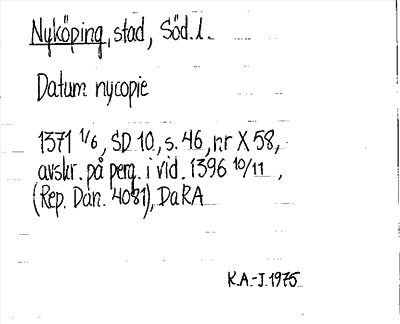 Nyköping, stad, Söd. l.
Datum nycopie
1371 1/6, SD 10, s. 46, nr X 58,
avskr. på perg. i vid. 1396 10/11,
(Rep. Dan. 4081), DaRA
K.A.-J. 1975